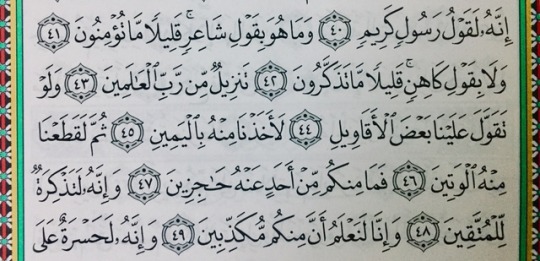 إِنَّهُۥ لَقَوۡلُ رَسُولٖ كَرِيمٖ ٤٠ وَمَا هُوَ بِقَوۡلِ شَاعِرٖۚ قَلِيلٗا مَّا تُؤۡمِنُونَ ٤١
وَلَا بِقَوۡلِ كَاهِنٖۚ قَلِيلٗا مَّا تَذَكَّرُونَ ٤٢ تَنزِيلٞ مِّن رَّبِّ ٱلۡعَٰلَمِينَ ٤٣ وَلَوۡ
تَقَوَّلَ عَلَيۡنَا بَعۡضَ ٱلۡأَقَاوِيلِ ٤٤ لَأَخَذۡنَا مِنۡهُ بِٱلۡيَمِينِ ٤٥ ثُمَّ لَقَطَعۡنَا
مِنۡهُ ٱلۡوَتِينَ ٤٦ فَمَا مِنكُم مِّنۡ أَحَدٍ عَنۡهُ حَٰجِزِينَ ٤٧ وَإِنَّهُۥ لَتَذۡكِرَةٞ
لِّلۡمُتَّقِينَ ٤٨ وَإِنَّا لَنَعۡلَمُ أَنَّ مِنكُم مُّكَذِّبِينَ ٤٩ وَإِنَّهُۥ لَحَسۡرَةٌ عَلَى